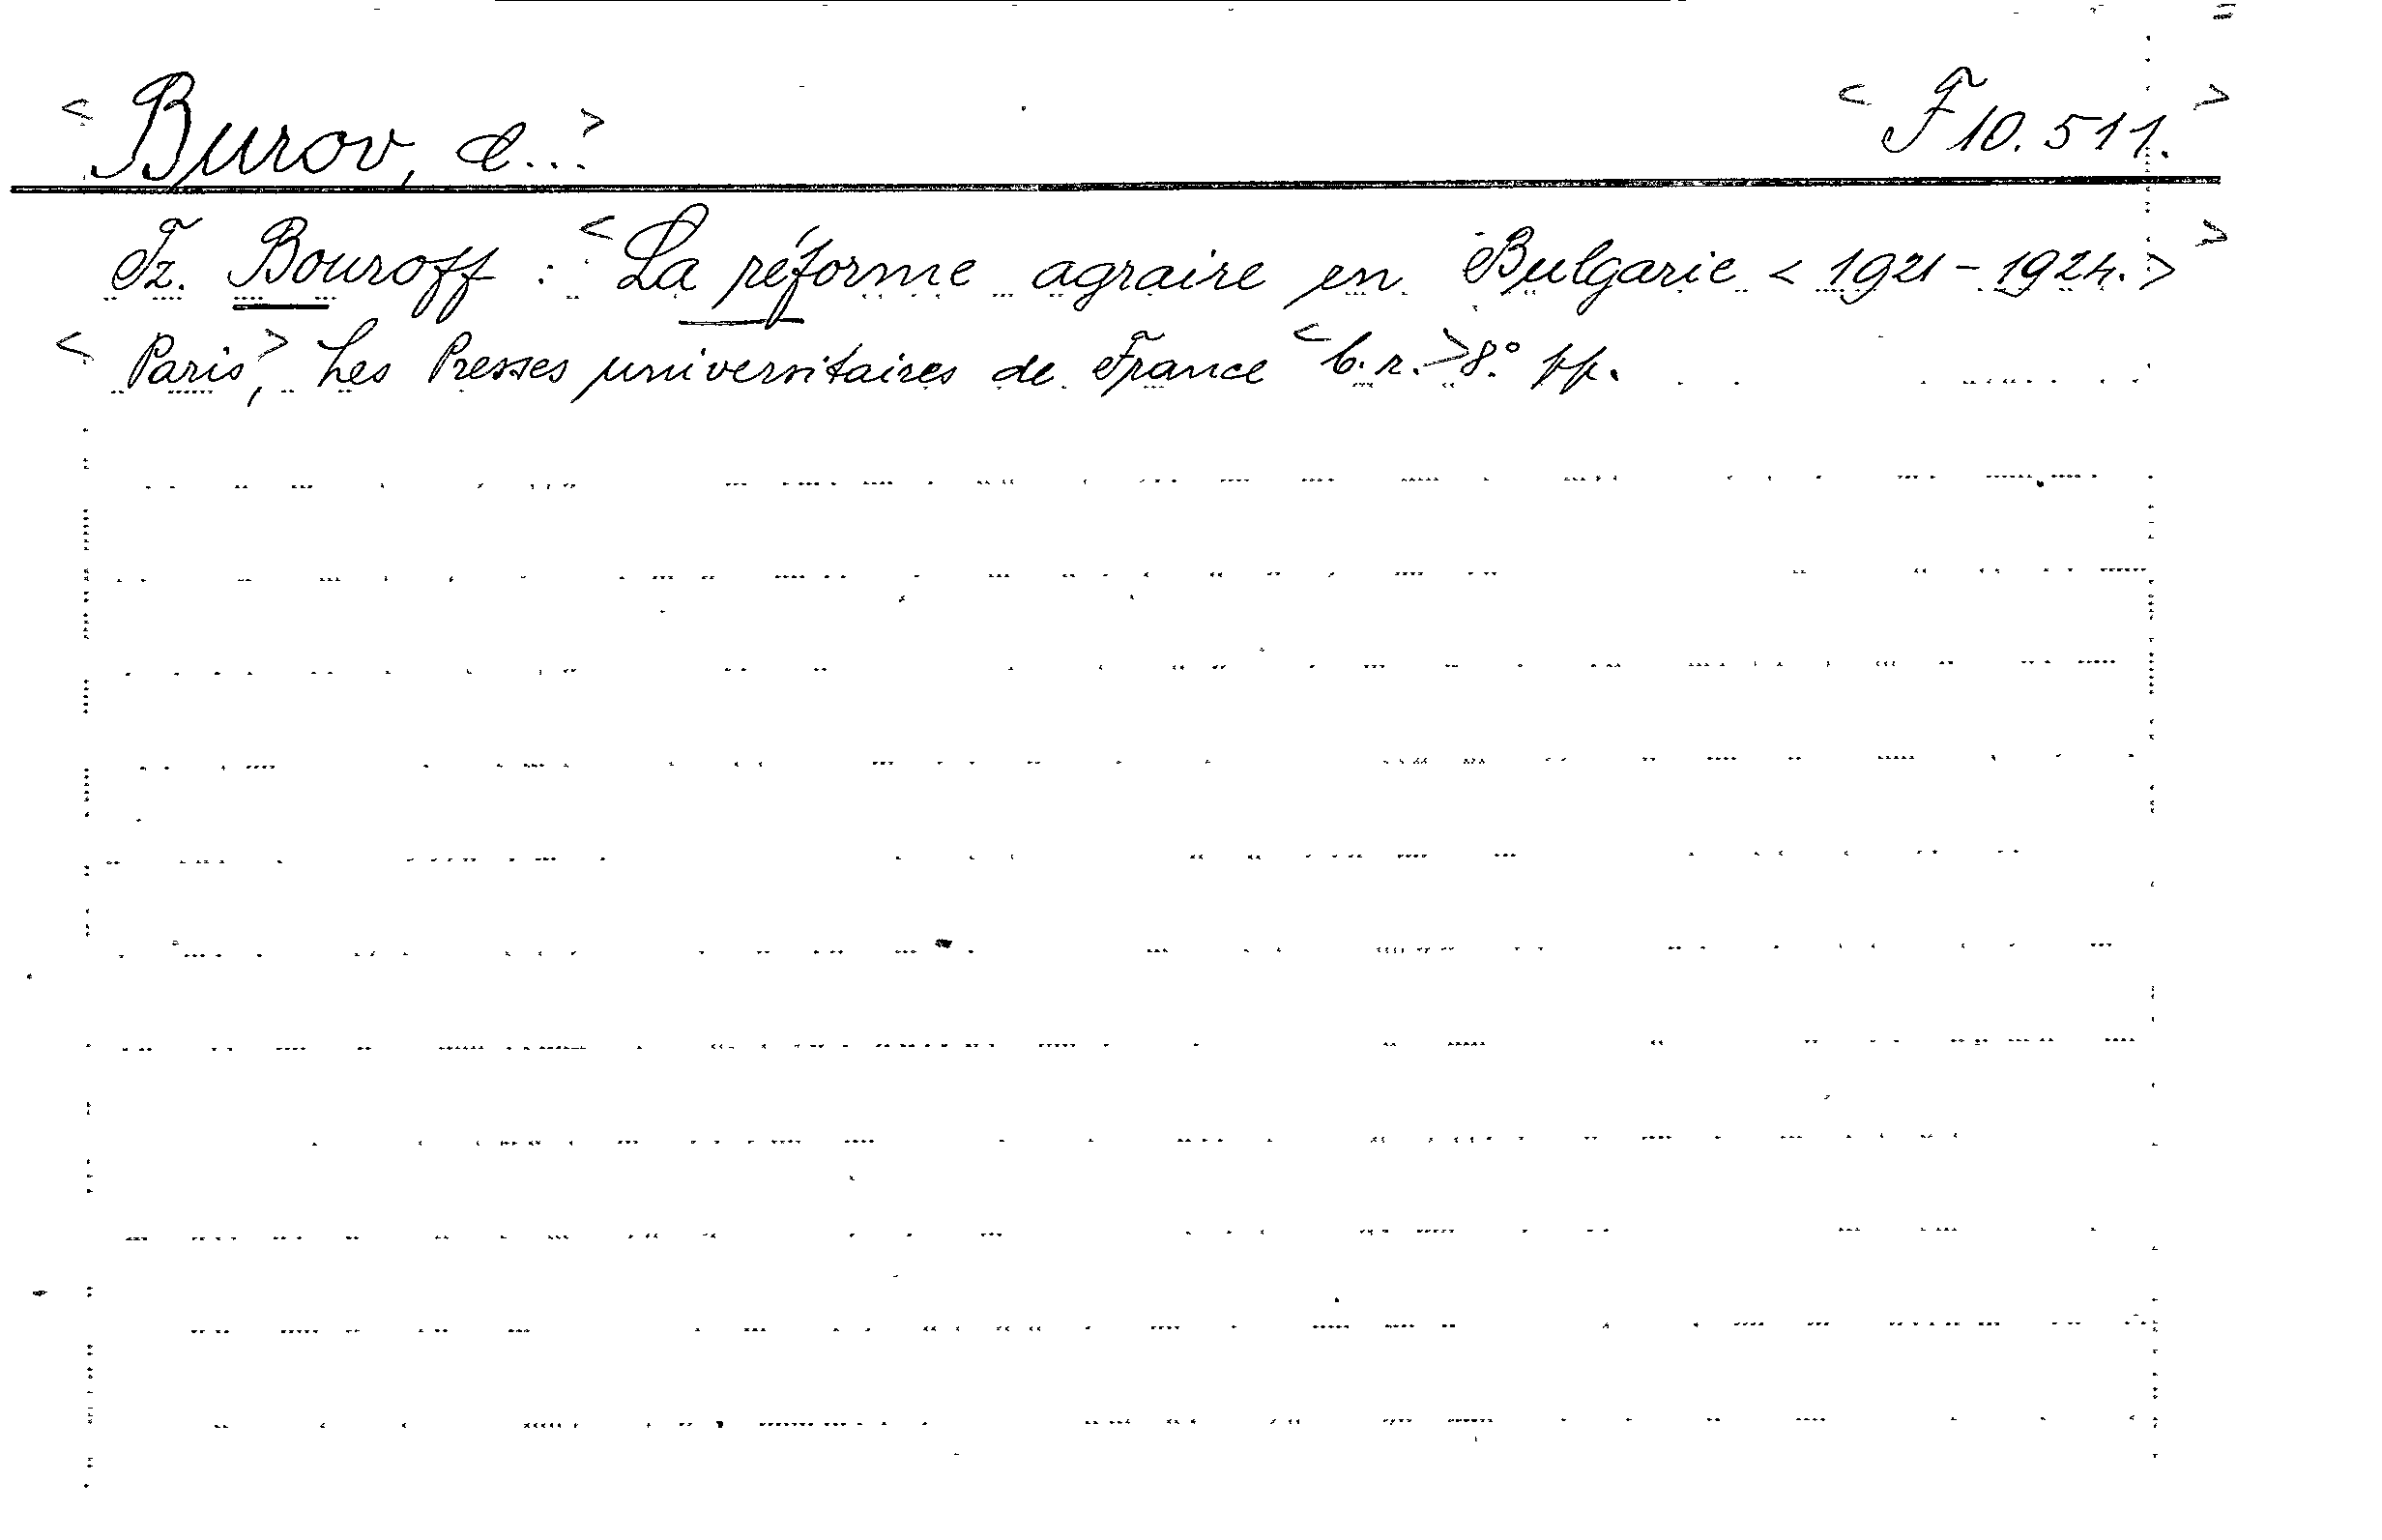 <Burov, C...>
<F 10.511.>
Tz. Bouroff : <La réforme agraire en Bulgarie < 1921-1924.>>
<Paris>, Les Presses universitaires de France <b.r.> 8.° pp.